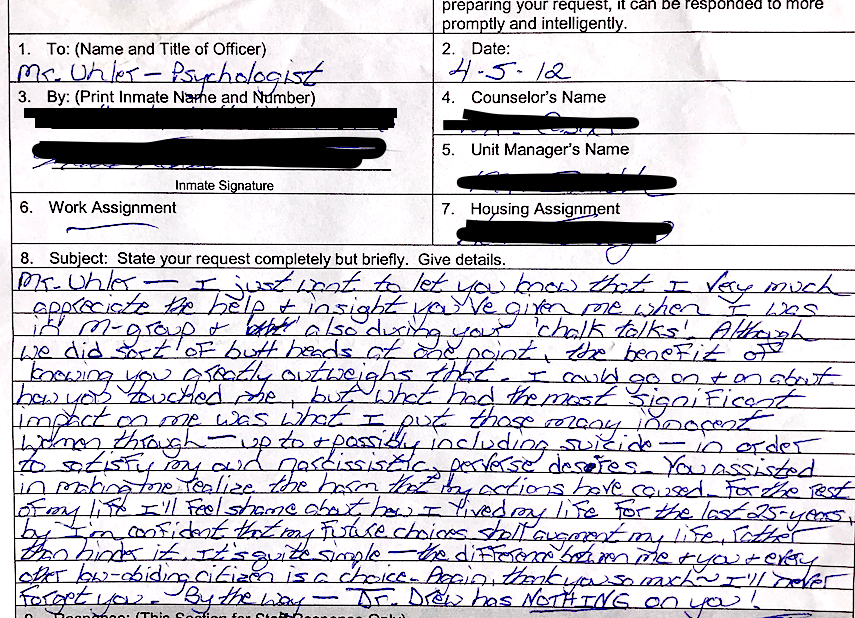 preparing your request, it can be responded to more
promptly and intelligently.
1. To: (Name and Title of Officer)
Mr. Uhler - Psychologist
2. Date:
4-5-12
3. By: (Print Inmate Name and Number)
4. Counselor's Name
5. Unit Manager's Name
Inmate Signature
6. Work Assignment
7. Housing Assignment
8. Subject: State your request completely but briefly. Give details.
Mr. Uhler — I just want to let you know that I very much
appreciate the help + insight you've given me when I was
in M-group + also during your 'chalk talks'. Although
we did sort of butt heads at one point, the benefit of
knowing you greatly outweighs that. I could go on + on about
how you touched me, but what had the most significant
impact on me was what I put those many innocent
women through — up to + possibly including suicide — in order
to satisfy my own narcissistic, perverse desires. You assisted
in making me realize the harm that my actions have caused. For the rest
of my life I'll feel shame about how I lived my life for the last 25-years,
by I'm confident that my future choices shall augment my life, rather
than hinder it. It's quite simple — the difference between me + you + every
other law-abiding citizen is a choice. Again, thank you so much ~ I'll never
forget you. By the way — Dr. Drew has NOTHING on you!
9. Response: (This Section for Staff Response Only)